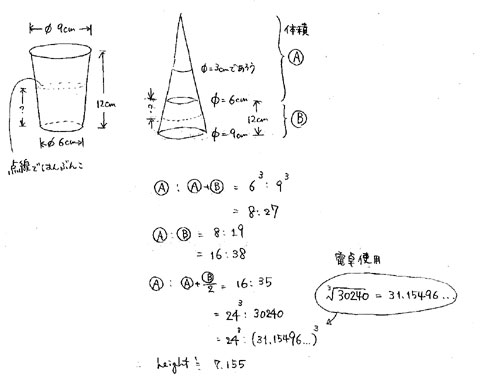 φ 9cm
?
12cm
φ 6cm
点線ではんぶんこ
体積
Ⓐ
φ=3cmであろう
φ=6cm
?
12cm
Ⓑ
φ=9cm
Ⓐ : Ⓐ+Ⓑ = 6³ : 9³
= 8 : 27
Ⓐ : Ⓑ = 8 : 19
= 16 : 38
Ⓐ : Ⓐ+Ⓑ/2 = 16 : 35
= 24³ : 30240
= 24³ : (31.15496...)³
∴ height ≒ 7.155
電卓使用
³√30240 = 31.15496...